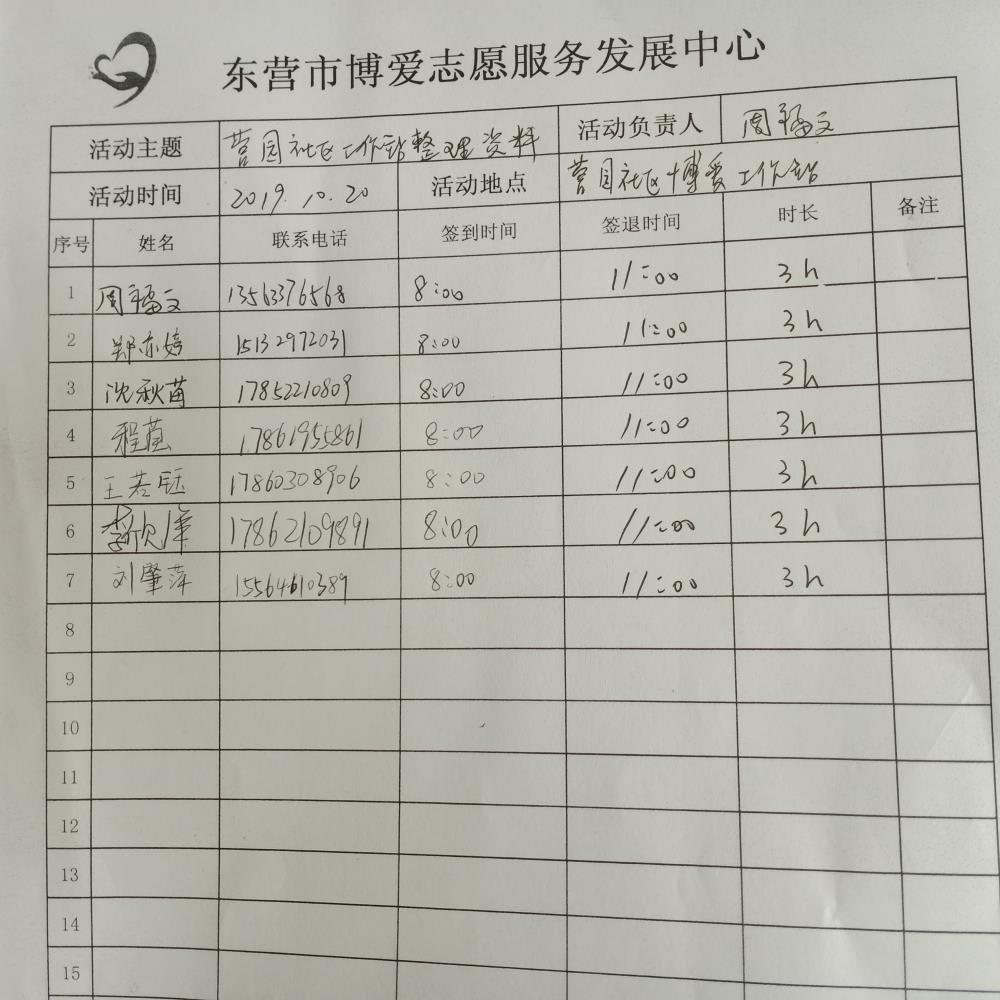 东营市博爱志愿服务发展中心
活动主题 营园社区工作站整理资料 活动负责人 周福文
活动时间 2019.10.20 活动地点 营园社区博爱工作站
序号 姓名 联系电话 签到时间 签退时间 时长 备注
1 周福文 13563376568 8:00 11:00 3h
2 郑亦婷 15132972031 8:00 11:00 3h
3 沈秋苗 17852210809 8:00 11:00 3h
4 程 17861955861 8:00 11:00 3h
5 王若钰 17860308906 8:00 11:00 3h
6 李欣 17862109891 8:00 11:00 3h
7 刘肇萍 15564610389 8:00 11:00 3h
8
9
10
11
12
13
14
15